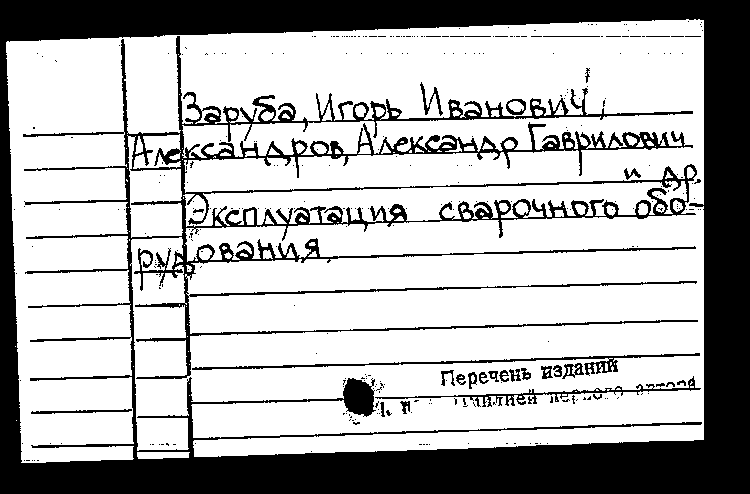 Заруба, Игорь Иванович,
Александров, Александр Гаврилович
и др.
Эксплуатация сварочного обо-
рудования.
Перечень изданий
первого автора